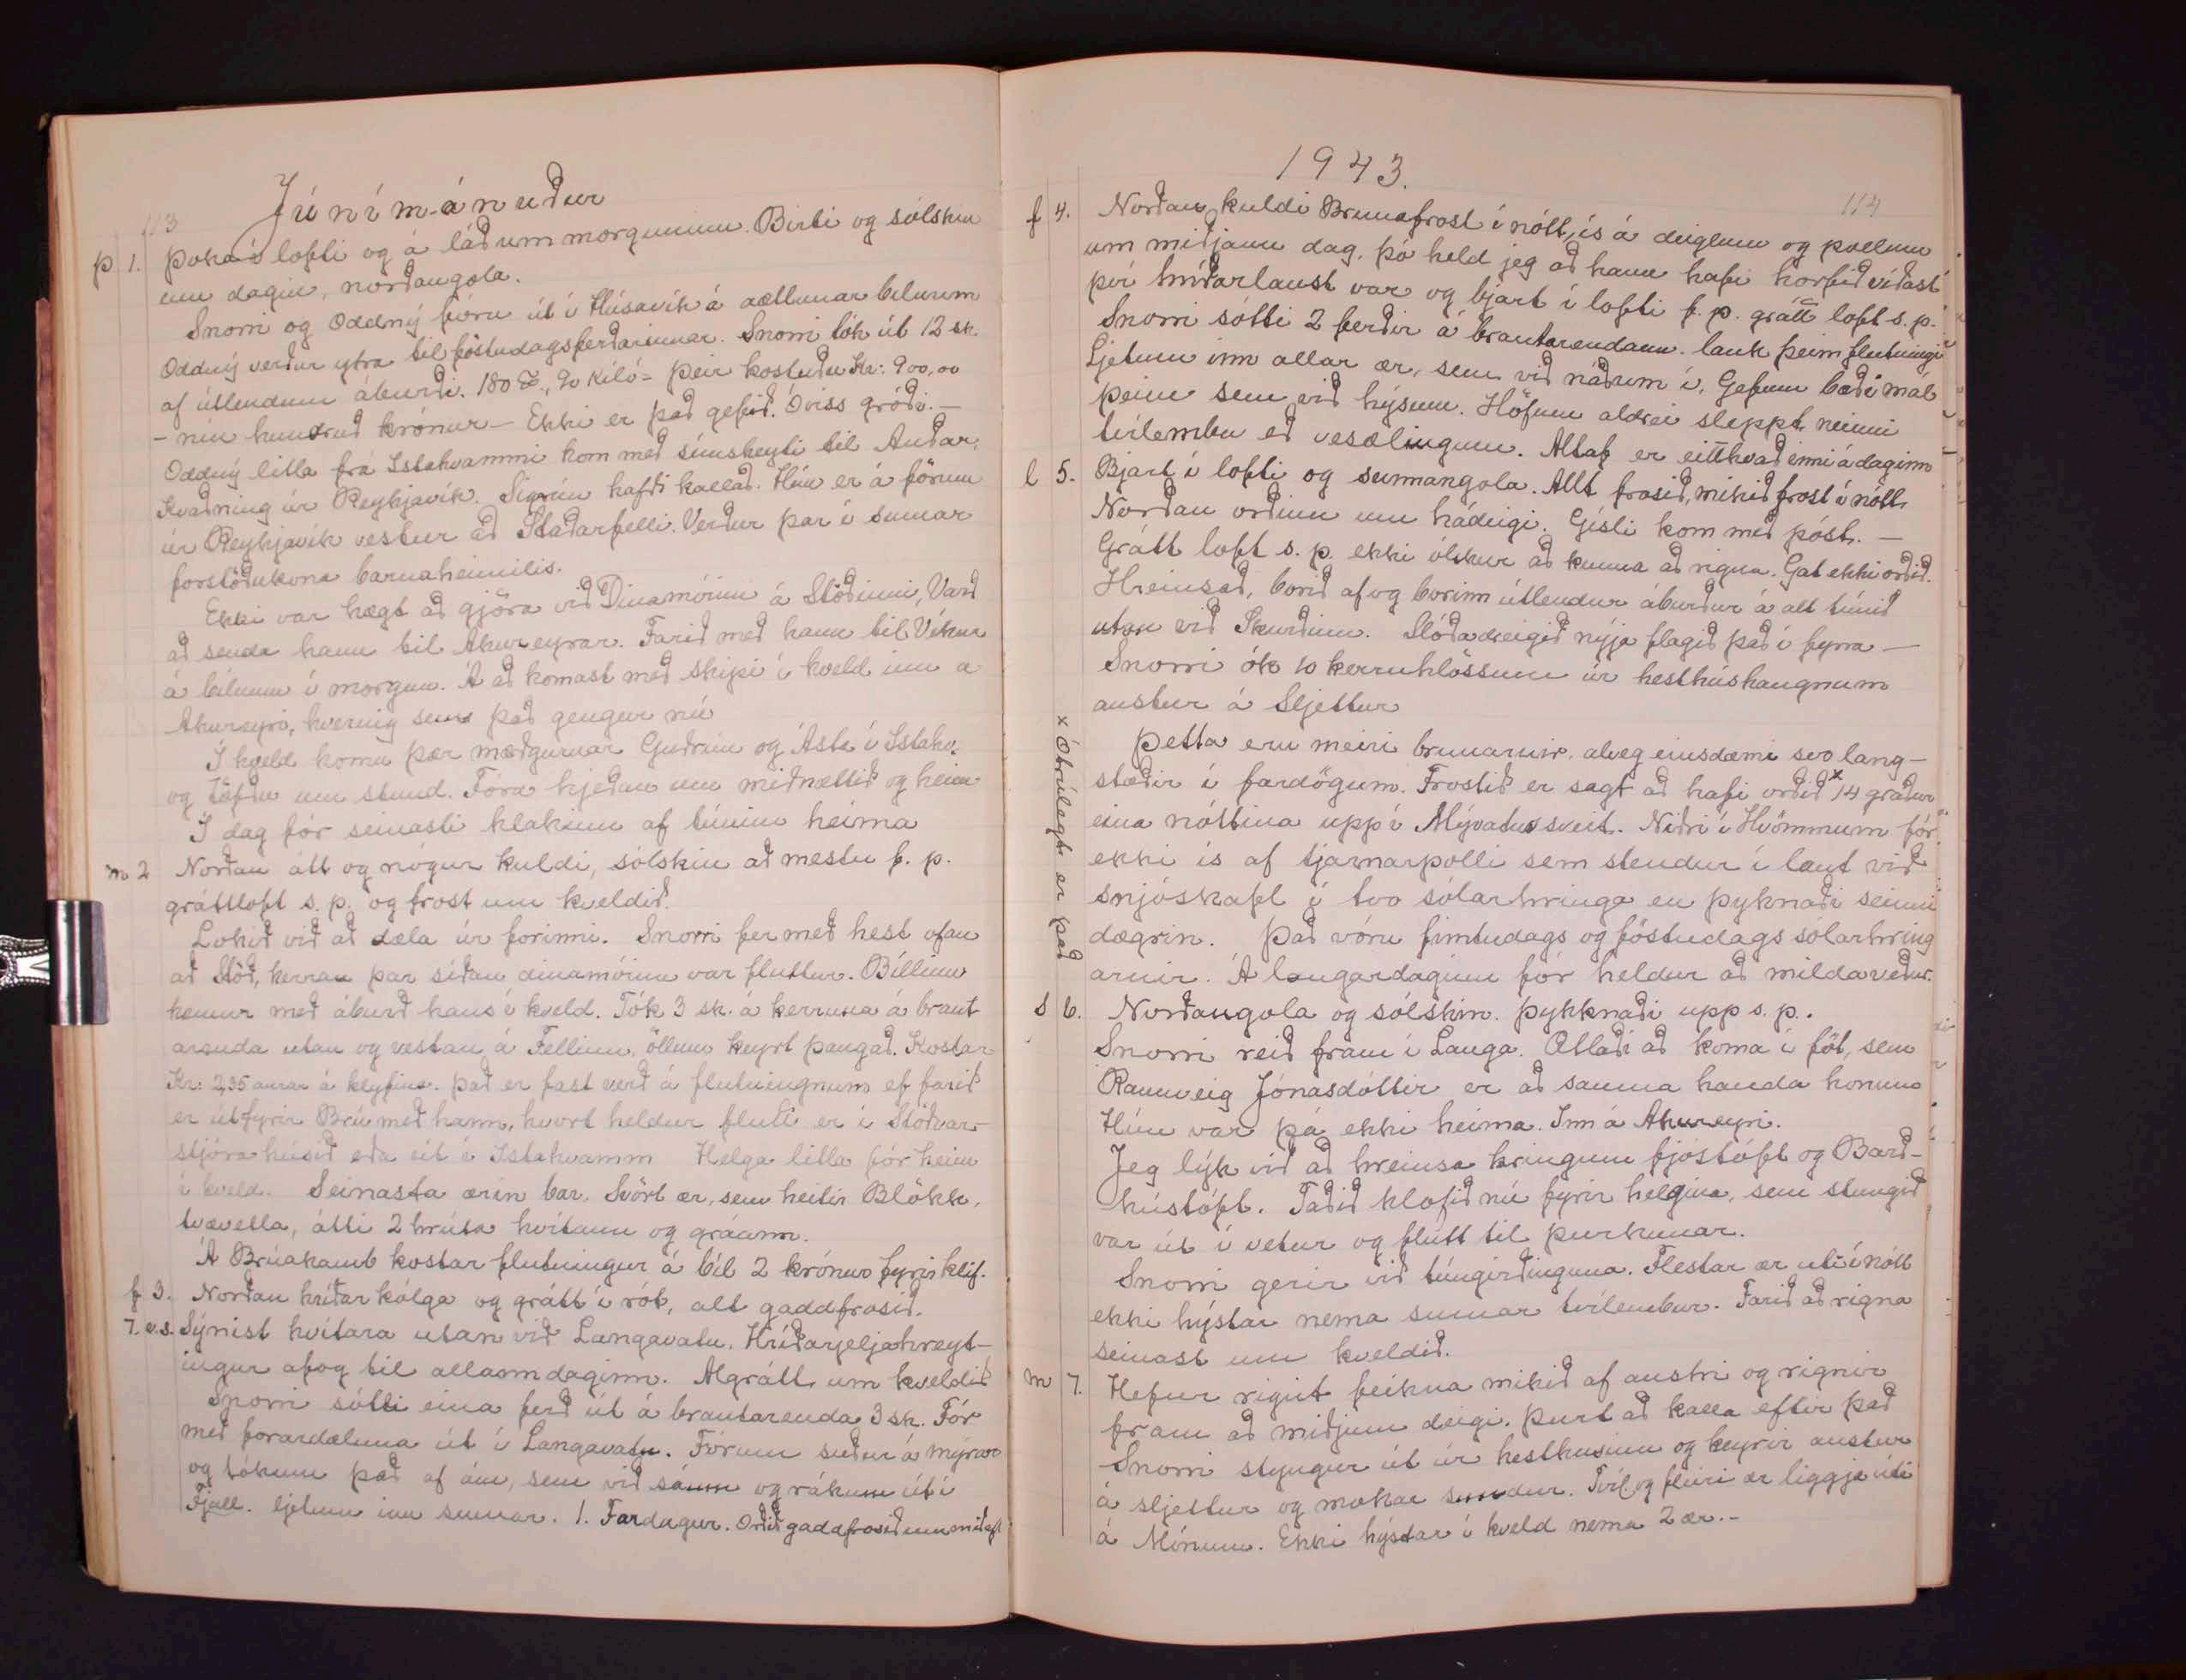 113
Júnímánuður
þ 1. Þoka í lofti og á láðum morguninn. Birti og sólskin
um dagin, norðangola.
Snorri og Oddný fóru út í Húsavík á áætlunar bílnum
Oddný verður ytra til föstudagsferðarinnar. Snorri tók út 12 sk.
af útlendum áburði. 180 ℔, 90 Kíló = þeir kostuðu Kr: 900,00
– níu hundruð krónur – Ekki er það gefið. Óviss gróði. –
Oddný litla frá Ystahvammi kom með símskeyti til Auðar,
Kvaðning úr Reykjavík. Sigrún hafði kallað. Hún er á förum
úr Reykjavík vestur að Staðarfelli. Verður þar í sumar
forstöðukona barnaheimilis.
Ekki var hægt að gjöra við Dinamóinn á Stöðinni, Varð
að senda hann til Akureyrar. Farið með hann til Víkur
á bílnum í morgun. Á að komast með skipi í kveld inn á
Akureyri, hvernig sem það gengur nú
Í kveld komu þær mæðgurnar Guðrún og Ásta í Ystahv.
og töfðu um stund. Fóru hjeðan um miðnættið og heim
Í dag fór seinasti klakinn af túninu heima
m 2 Norðan átt og nógur kuldi, sólskin að mestu f. p.
gráttloft s. p. og frost um kveldið.
Lokið við að dæla úr forinni. Snorri fer með hest ofan
að Stöð, kerran þar síðan dinamóinn var fluttur. Bíllinn
kemur með áburð hans í kveld. Tók 3 sk. á kerruna á braut
arenda utan og vestan á Fellinu, öllum keyrt þangað. Kostar
Kr: 2,35 aurar á klyfina. Það er fast verð á flutningnum ef farið
er út fyrir Brú með hann, hvort heldur flutt er í Stöðvar-
stjórahúsið eða út í Ystahvamm Helga litla fór heim
í kveld. Seinasta ærin bar. Svört ær, sem heitir Blökk,
tvævetla, átti 2 hrúta hvítann og gráann.
Á Brúakamb kostar flutningur á bíl 2 krónur fyrir klif.
f 3. Norðan hríðar kólga og grátt í rót, alt gaddfrosið.
7. v.s. Sýnist hvítara utan við Langavatn. Hríðarjeljahreyt-
ingur af og til allann daginn. Algrátt um kveldið
Snorri sótti eina ferð út á brautarenda 3 sk. Fór
með forardæluna út í Langavatn. Fórum suður á mýrar
og tókum það af ám, sem við sáum og rákum út í
Fjall. ljetum inn sumar. 1. Fardagur. Orðið gaddfrosið um miðaft
1943.
114
f 4. Norðan kuldi Brunafrost í nótt, ís á deiglum og pollum
um miðjann dag. þó held jeg að hann hafi horfið víðast
því hríðarlaust var og bjart í lofti f. p. grátt loft s. p.
Snorri sótti 2 ferðir á brautarendann. lauk þeim flutningi
Ljetum inn allar ær, sem við náðum í, Gefum bæði mál
þeim sem við hýsum. Höfum aldrei sleppt neinni
tvílembu eð vesælingum. Altaf er eitthvað inni á daginn
l 5. Bjart í lofti og sunnangola. Allt frosið, mikið frost í nótt.
Norðan orðinn um hádeigi. Gísli kom með póst. –
Grátt loft s. p. ekki ólíkur að kunna að rigna. Gat ekki orðið.
Hreinsað, borið af og borinn útlendur áburður á alt túnið
utan við Skurðinn. Slóðadreigið nýja flagið það í fyrra –
Snorri ók 10 kerruhlössum úr hesthúshaugnum
austur á Sljettur
Þetta eru meiri brunarnir. alveg einsdæmi svo lang-
stæðir í fardögum. Frostið er sagt að hafi orðið x14 gráður
eina nóttina upp í Mývatnssveit. Niðri í Hvömmum fór
ekki ís af tjarnarpolli sem stendur í laut við
snjóskafl í tvo sólarhringa en þyknaði seinni
dægrin. Það vóru fimtudags og föstudags sólarhring
arnir. Á laugardaginn fór heldur að milda veður.
x Ótrúlegt er það
s 6. Norðangola og sólskin. Þykknaði upp s. p..
Snorri reið fram í Lauga. Ætlaði að koma í föt, sem
Rannveig Jónasdóttir er að sauma handa honum
Hún var þá ekki heima. Inn á Akureyri.
Jeg lýk við að hreinsa kringum fjóstóft og Barð-
hústóft. Taðið klofið nú fyrir helgina, sem stungið
var út í vetur og flutt til þurkunar.
Snorri gerir við túngirðinguna. Flestar ær úti í nótt
ekki hýstar nema sumar tvílembur. Farið að rigna
seinast um kveldið.
m 7. Hefur rignt feikna mikið af austri og rignir
fram að miðjum deigi. Þurt að kalla eftir það
Snorri styngur út úr hesthúsinu og keyrir austur
á sljettur og mokar sundur. Tvíl. og fleiri ær liggja úti
á Mónum. Ekki hýstar í kveld nema 2 ær. –